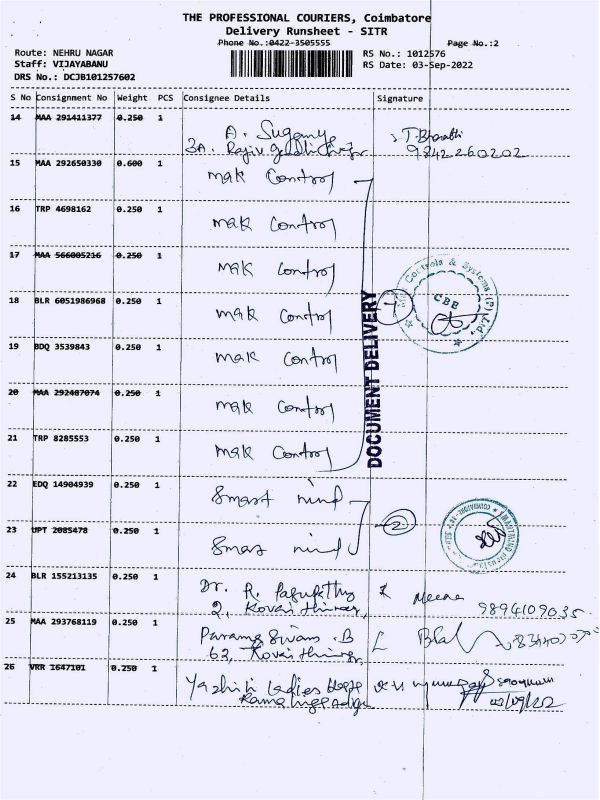 THE PROFESSIONAL COURIERS, Coimbatore
Delivery Runsheet - SITR
Phone No.:0422-3505555
Page No.:2
Route: NEHRU NAGAR
RS No.: 1012576
Staff: VIJAYABANU
RS Date: 03-Sep-2022
DRS No.: DCJB101257602
S No Consignment No Weight PCS Consignee Details Signature
14 MAA 291411377 0.250 1
3A. Rajiv
T. Bharathi
9842260202
15 MAA 292650330 0.600 1 mak Control
16 TRP 4698162 0.250 1 mak Control
17 MAA 566005216 0.250 1 mak Control
18 BLR 6051986968 0.250 1 mak Control
19 BDQ 3539843 0.250 1 mak Control
20 MAA 292487074 0.250 1 mak Control
21 TRP 8285553 0.250 1 mak Control
DOCUMENT DELIVERY
1
Controls & Systems (P) Ltd.
CBE
22 EDQ 14904939 0.250 1 Smart mind
23 UPT 2085478 0.250 1 Smart mind
2
24 BLR 155213135 0.250 1 Dr. R.
2,
Meena
9894109035
25 MAA 293768119 0.250 1 B
63,
26 VRR 1647101 0.250 1 Ladies